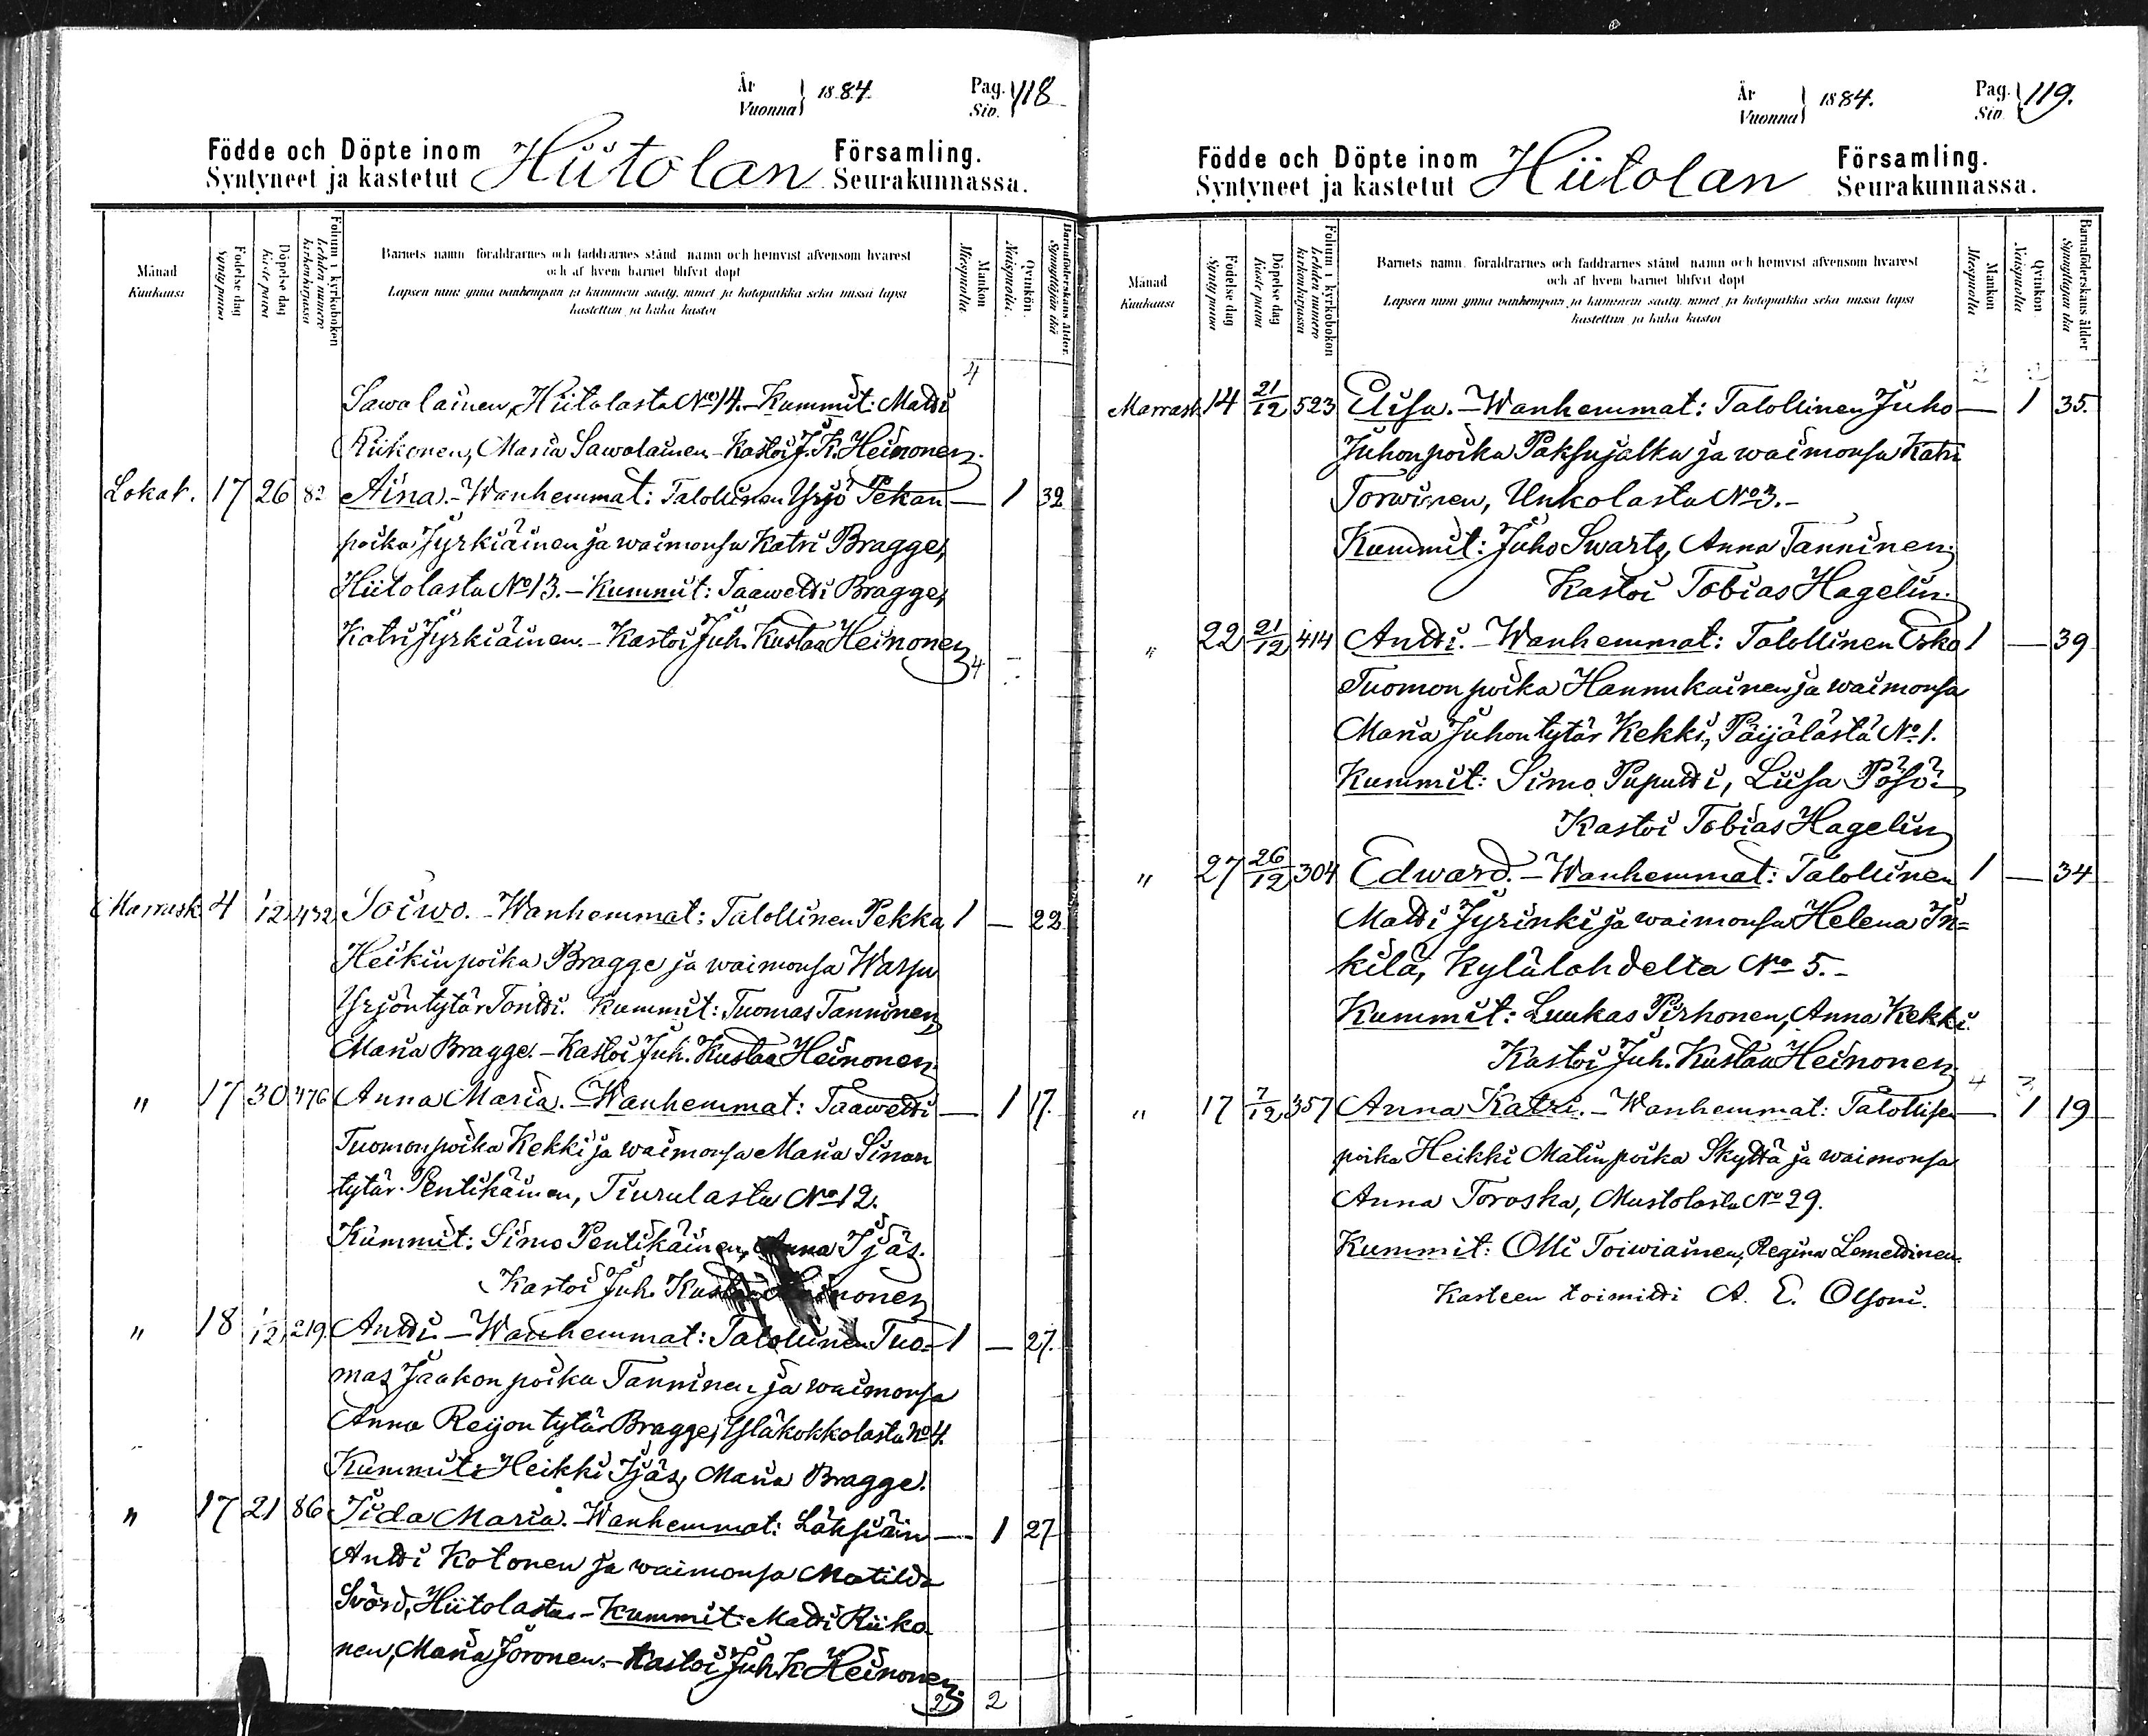 År
Vuonna } 1884.
Pag.
Siv. } 118
Födde och Döpte inom
Syntyneet ja kastetut Hiitolan Församling.
Seurakunnassa.
Månad
Kuukausi
Födelse dag
Synty päivä
Döpelse dag
Kaste päivä
Folium i kyrkoboken
Lehden numero
kirkonkirjassa
Barnets namn föräldrarnes och faddrarnes stånd namn och hemvist äfvensom hvarest
och af hvem barnet blifvit döpt
Lapsen nimi ynnä vanhempain ja kummein sääty, nimet ja kotopaikka sekä missä lapsi
kastettiin ja kuka kastoi
Mankön
Miespuolia
Qvinkön.
Naispuolia.
Barnaföderskans ålder.
Synnyttäjän ikä
4
Sawolainen, Hiitolasta No 14. - Kummit: Matti
Riikonen, Maria Sawolainen - Kastoi J. K. Heinonen.
Lokak. 17 26 82 Aina. - Wanhemmat: Talollinen Yrjö Pekan — 1 32
poika Jyrkiäinen ja waimonsa Katri Bragge,
Hiitolasta No 13. - Kummit: Taawetti Bragge,
Katri Jyrkiäinen. - Kastoi Juh. Kustaa Heinonen
4
Marrask. 4 1/12 432 Toiwo. - Wanhemmat: Talollinen Pekka 1 — 22
Heikinpoika Bragge ja waimonsa Warpu
Yrjöntytär Tontti. Kummit: Tuomas Tanninen,
Maria Bragge. - Kastoi Juh. Kustaa Heinonen.
" 17 30 376 Anna Maria. - Wanhemmat: Taawetti — 1 17.
Tuomonpoika Kekki ja waimonsa Maria Simon
tytär Pentikäinen, Tiurulasta No 12.
Kummit: Simo Pentikäinen, Anna Ijäs.
Kastoi Juh. Kustaa Heinonen
" 18 1/12 219. Antti. - Wanhemmat: Talollinen Tuo- 1 — 27.
mas Jaakonpoika Tanninen ja waimonsa
Anna Reijon tytär Bragge, Yläkokkolasta No 4.
Kummit: Heikki Ijäs, Maria Bragge.
" 17 21 86 Iida Maria. - Wanhemmat: Läksiäin — 1 27
Antti Kotonen ja waimonsa Matilda
Svörd, Hiitolasta. - Kummit: Matti Riiko-
nen, Maria Joronen. - Kastoi Juh. K Heinonen.
2 2
År
Vuonna } 1884.
Pag.
Siv. } 119.
Födde och Döpte inom
Syntyneet ja kastetut Hiitolan Församling.
Seurakunnassa.
Månad
Kuukausi
Födelse dag
Synty päivä
Döpelse dag
Kaste päivä
Folium i kyrkoboken
Lehden numero
kirkonkirjassa
Barnets namn, föräldrarnes och faddrarnes stånd namn och hemvist äfvensom hvarest
och af hvem barnet blifvit döpt
Lapsen nimi ynnä vanhempain ja kummein sääty, nimet ja kotopaikka sekä missä lapsi
kastettiin ja kuka kastoi
Mankön
Miespuolia
Qvinkön
Naispuolia
Barnaföderskans ålder
Synnyttäjän ikä
Marrask. 14 21/12 523 Elisa. - Wanhemmat: Talollinen Juho — 1 35.
Juhonpoika Paksujalka ja waimonsa Katri
Torwinen, Unkolasta No 3. -
Kummit: Juho Swartz, Anna Tanninen.
Kastoi Tobias Hagelin.
" 22 21/12 414 Antti. - Wanhemmat: Talollinen Esko 1 — 39
Tuomonpoika Hannukainen ja waimonsa
Maria Juhontytär Kekki, Päijälästä No 1.
Kummit: Simo Puputti, Liisa Pösö. -
Kastoi Tobias Hagelin
" 27 26/12 304 Edward. - Wanhemmat: Talollinen 1 — 34
Matti Jyrinki ja waimonsa Helena In=
kilä, Kylälahdelta No 5. -
Kummit: Luukas Pirhonen, Anna Kekki.
Kastoi Juh. Kustaa Heinonen
4 3
" 17 7/12 357 Anna Katri. - Wanhemmat: Talollisen — 1 19
poika Heikki Matinpoika Skyttä ja waimonsa
Anna Toroska, Mustolasta No 29.
Kummit: Olli Toiwiainen, Regina Lomettinen.
Kasteen toimitti A. E. Olsoni.